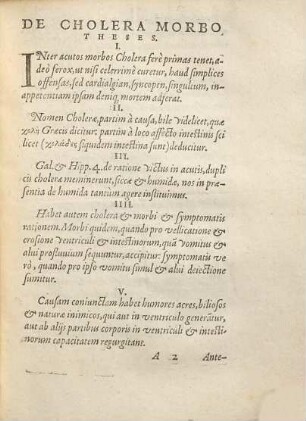 DE CHOLERA MORBO,
THESES.
I.
INter acutos morbos Cholera ferè primas tenet, a-
deò ferox, ut nisi celerrimè curetur, haud simplices
offensas, sed cardialgian, syncopen, singultum, in-
appetentiam ipsam deniq; mortem adferat.
II.
Nomen Choleræ, partim à causa, bile videlicet, quæ
χολὴ Græcis dicitur: partim à loco affecto intestinis sci
licet (χολάδες siquidem intestina sunt) deducitur.
III.
Gal. & Hipp. 4. de ratione victus in acutis, dupli
cis cholera meminerunt, siccæ & humidæ, nos in præ-
sentia de humida tantùm agere instituimus.
IIII.
Habet autem cholera & morbi & symptomatis
rationem. Morbi quidem, quando pro vellicatione &
erosione ventriculi & intestinorum, quā vomitus &
alui profluuium sequuntur, accipitur: symptomatis ve
rò, quando pro ipso vomitu simul & alui deiectione
sumitur.
V.
Causam coniunctam habet humores acres, biliosos
& naturæ inimicos, qui aut in ventriculo generātur,
aut ab alijs partibus corporis in ventriculi & intesti-
norum capacitatem regurgitant.
A 2 Ante-